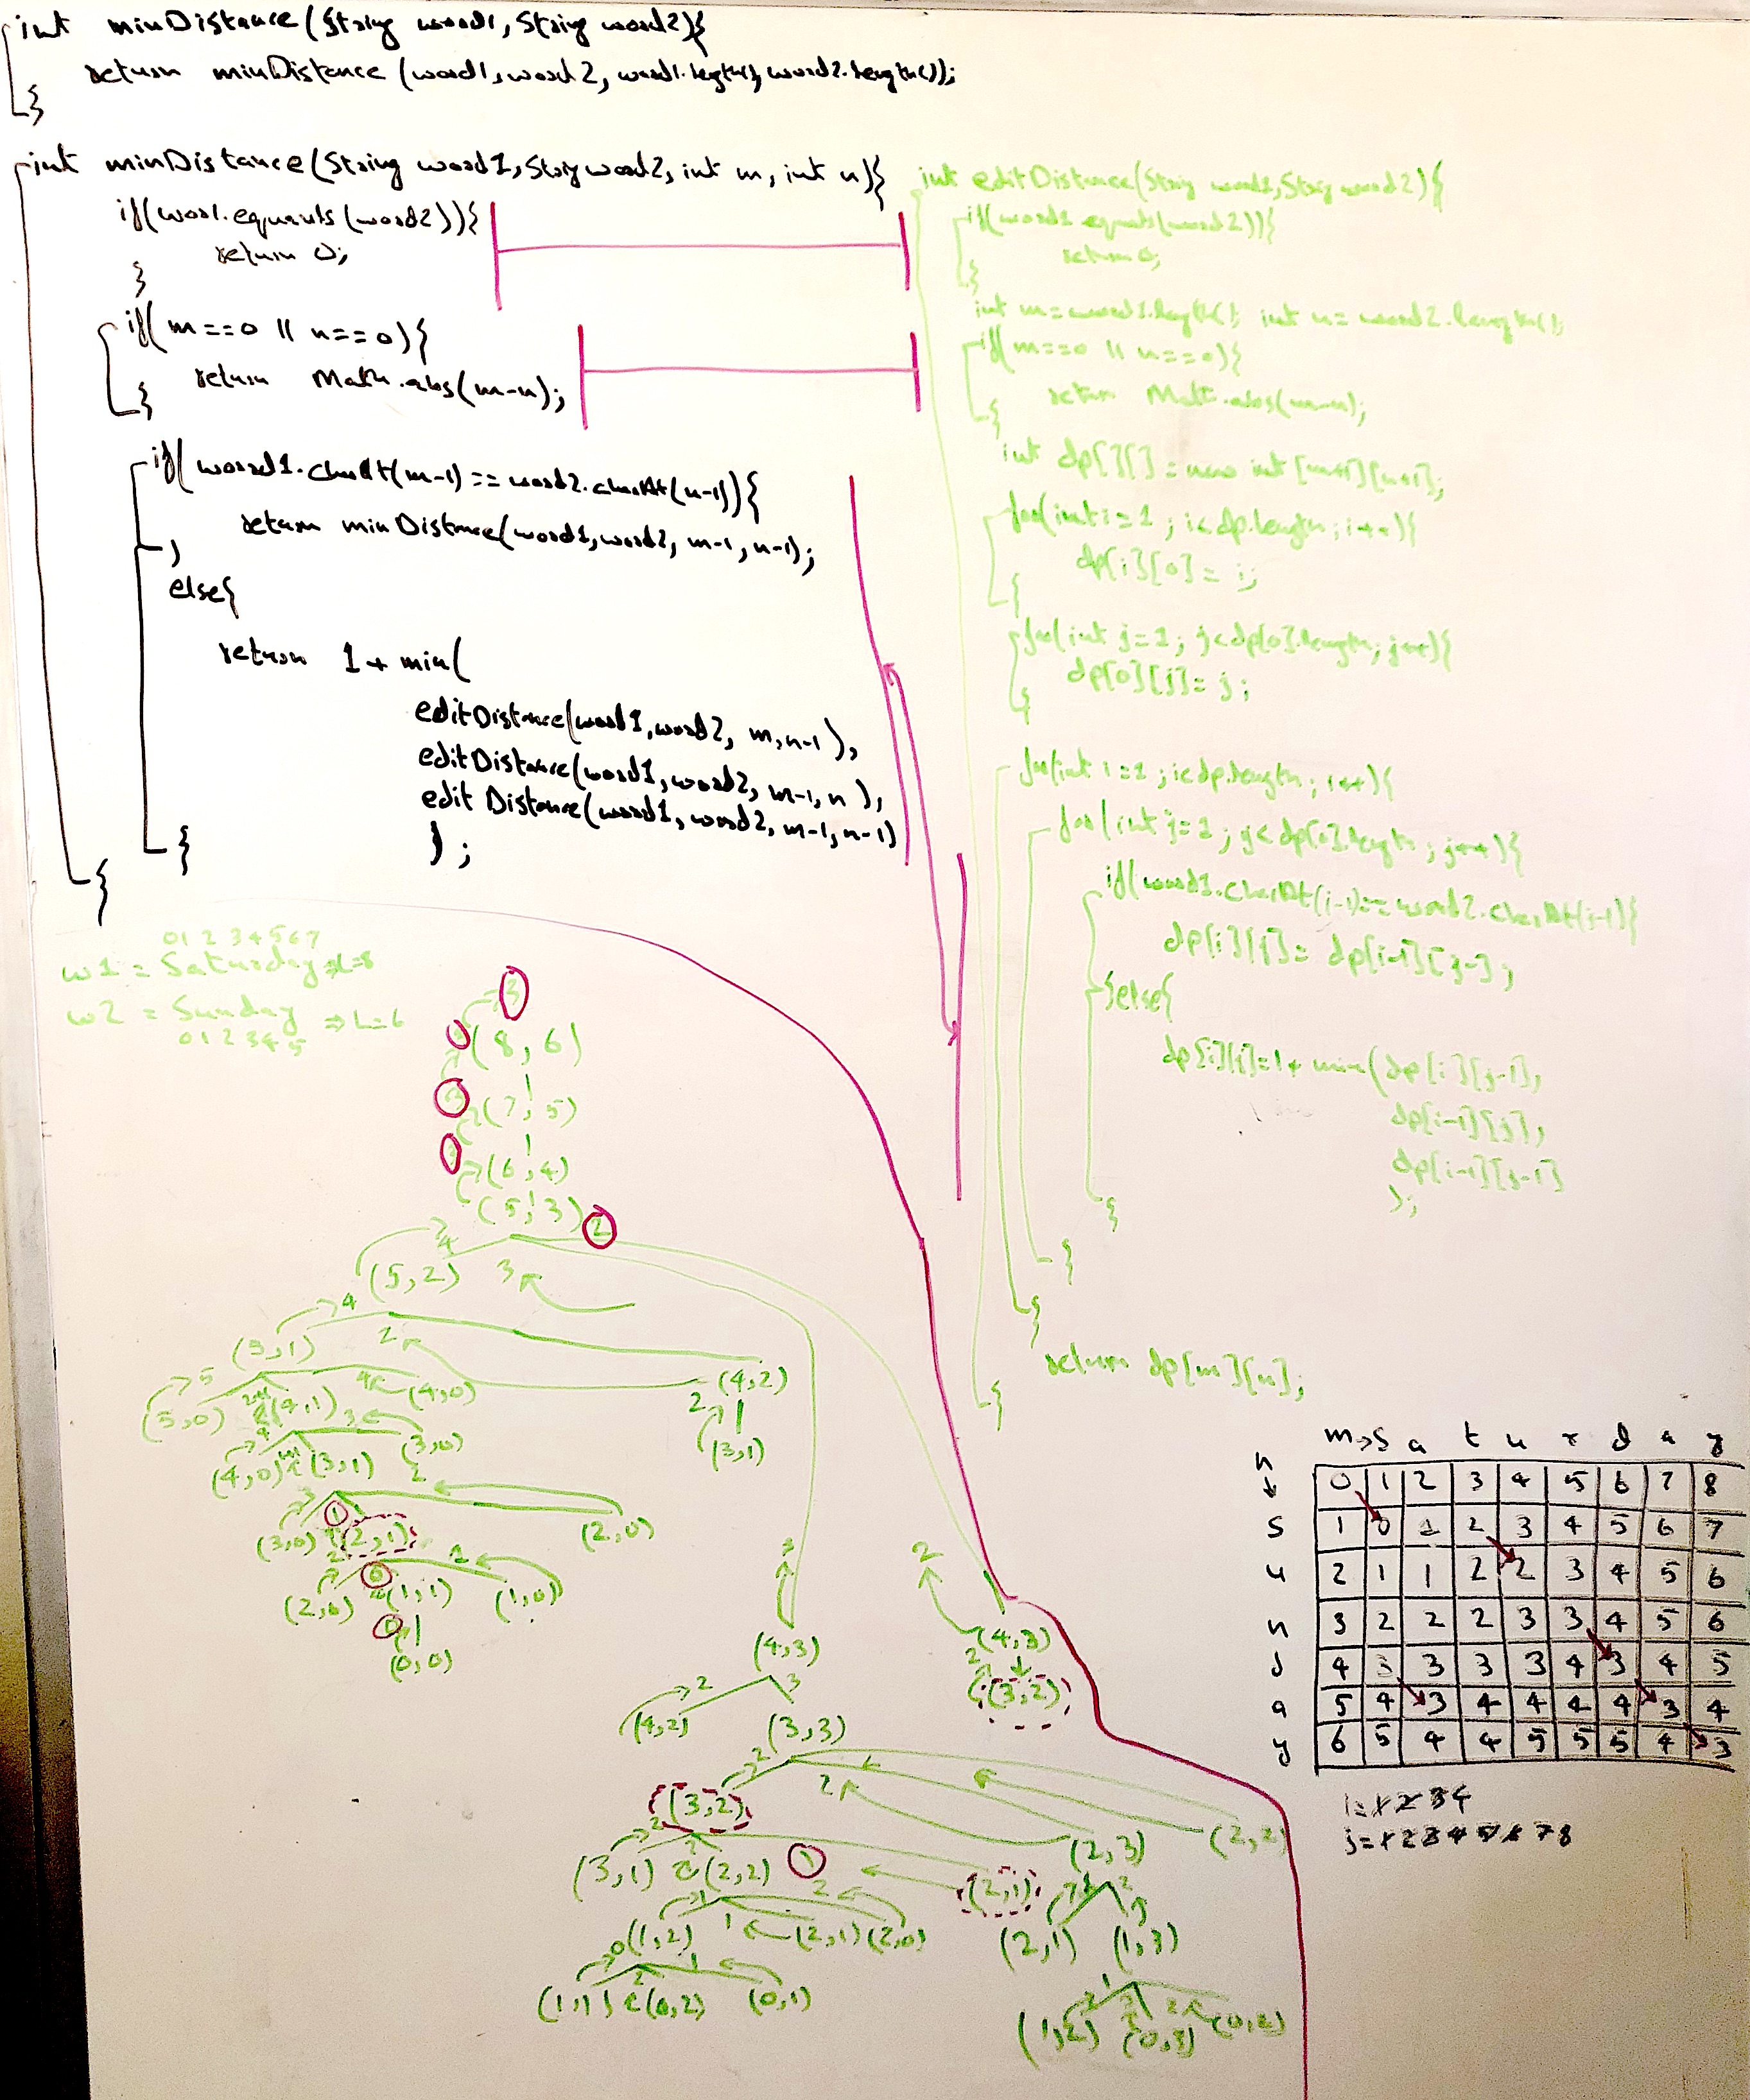 int minDistance(String word1, String word2){
return minDistance(word1, word2, word1.length(), word2.length());
}
int minDistance(String word1, String word2, int m, int n){
if(wor1.equauls(word2)){
return 0;
}
if(m==0 || n==0){
return Math.abs(m-n);
}
if(word1.charAt(m-1) == word2.charAt(n-1)){
return minDistance(word1,word2, m-1, n-1);
}
else{
return 1+ min(
editDistance(word1,word2, m,n-1),
editDistance(word1,word2, m-1,n),
editDistance(word1,word2, m-1,n-1)
);
}
}
int editDistance(String word1,String word2){
if(word1.equals(word2)){
return 0;
}
int m=word1.length(); int n=word2.length();
if(m==0 || n==0){
return Math.abs(m-n);
}
int dp[][]=new int[m+1][n+1];
for(int i=1; i<dp.length; i++){
dp[i][0]=i;
}
for(int j=1; j<dp[0].length; j++){
dp[0][j]=j;
}
for(int i=1; i<dp.length; i++){
for(int j=1; j<dp[0].length; j++){
if(word1.charAt(i-1)==word2.charAt(j-1){
dp[i][j]= dp[i-1][j-1];
}else{
dp[i][j]=1+ min(dp[i][j-1],
dp[i-1][j],
dp[i-1][j-1]
);
}
}
}
return dp[m][n];
}
0 1 2 3 4 5 6 7
w1 = Saturday ⇒ L=8
w2 = Sunday ⇒ L=6
0 1 2 3 4 5
3
(8,6)
3 (7,5)
(6,4)
(5,3) 2
4
(5,2) 3
4
(3,1) 2
5 (5,0) (4,1) 4 (4,0) 2 (4,2)
(4,0) (3,1) 3 (3,0) (3,1)
2
3 (3,0) 1 (2,1) (2,0)
(2,0) 0 (1,1) 1 (1,0)
0 (0,0)
3 2
(4,3) (4,3)
2 3 2 (3,2)
(4,2) (3,3)
2 (3,2) 2 (2,3) (2,2)
(3,1) (2,2) 1 (2,1)
0 (1,2) 1 (2,1) 2 (2,0) (2,1) (1,3)
(1,1) (0,2) 1 (0,1) (1,2) (0,3) 2 (0,2)
m→S a t u r d a y
n↓ 0 1 2 3 4 5 6 7 8
S 1 0 1 2 3 4 5 6 7
u 2 1 1 2 2 3 4 5 6
n 3 2 2 2 3 3 4 5 6
d 4 3 3 3 3 4 3 4 5
a 5 4 3 4 4 4 4 3 4
y 6 5 4 4 5 5 5 4 3
i=1 2 3 4
j=1 2 3 4 5 6 7 8